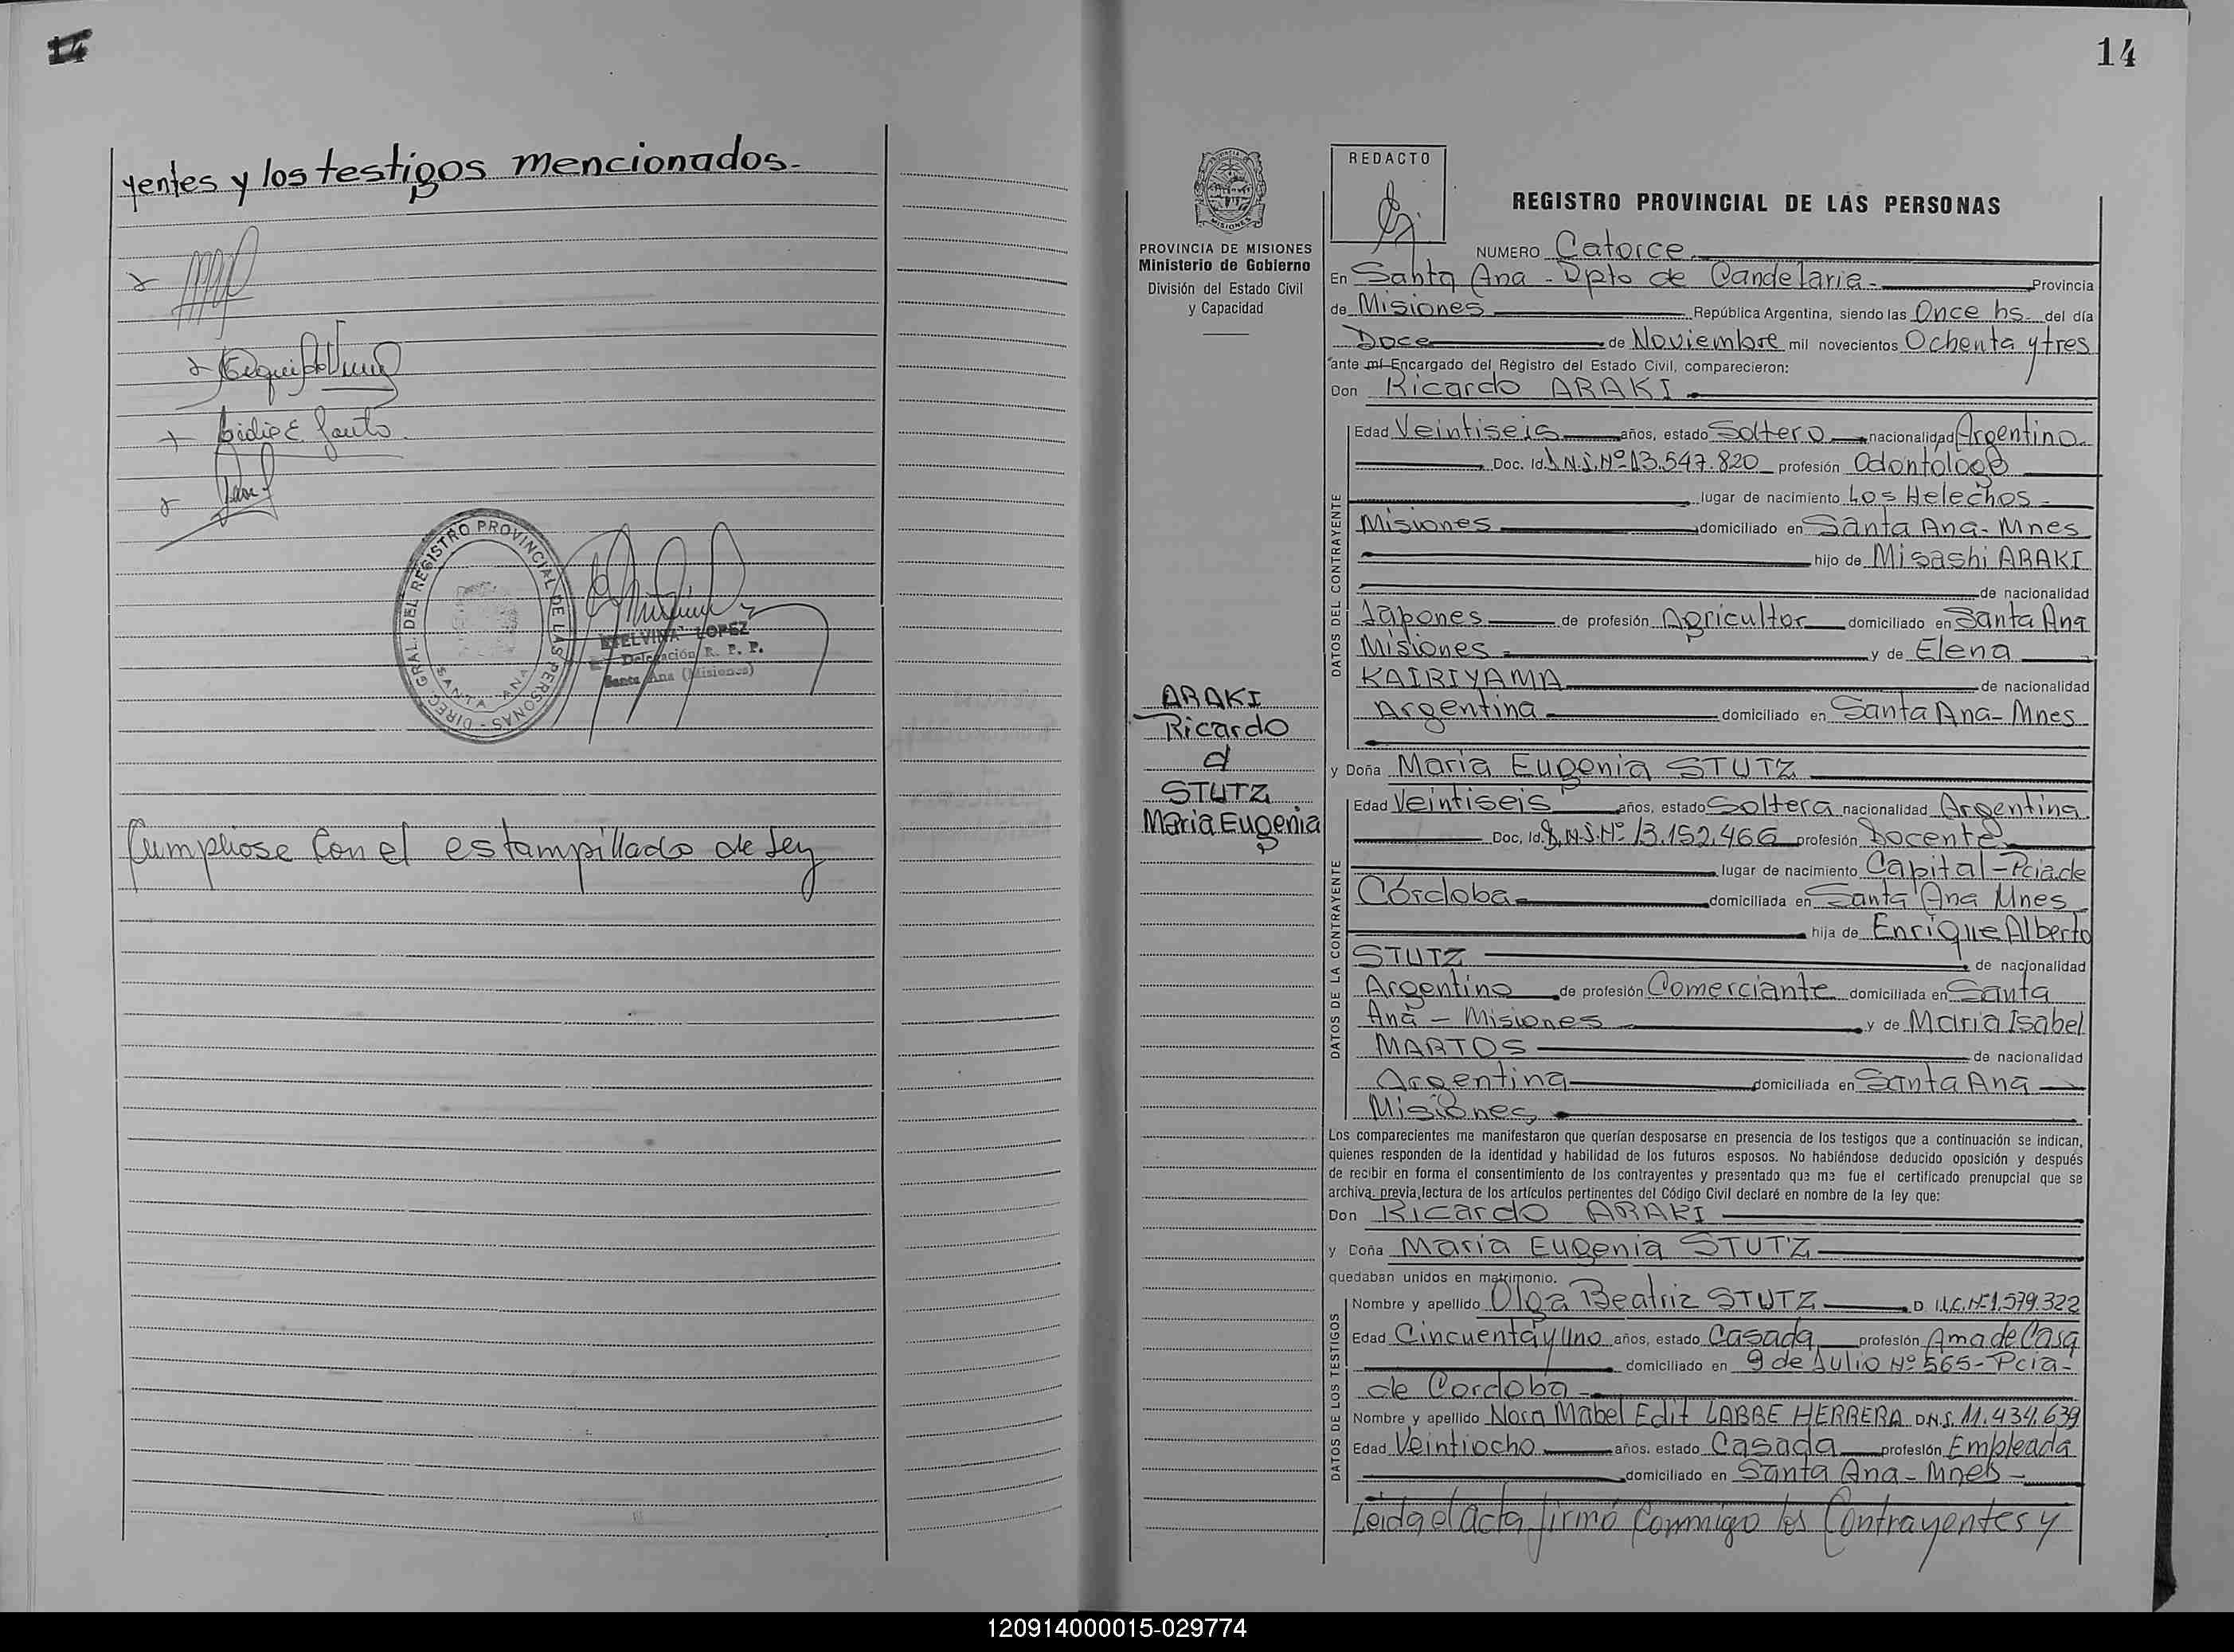 14
yentes y los testigos mencionados.-
DIREC. GRAL. DEL REGISTRO PROVINCIAL DE LAS PERSONAS -
SANTA ANA
ETELVINA LOPEZ
Delegación R. P. P.
Santa Ana (Misiones)
Cumpliose Con el estampillado de Ley
14
REDACTO
PROVINCIA DE MISIONES
Ministerio de Gobierno
División del Estado Civil
y Capacidad
ARAKI
Ricardo
STUTZ
Maria Eugenia
REGISTRO PROVINCIAL DE LAS PERSONAS
NUMERO Catorce
En Santa Ana - Dpto de Candelaria - Provincia
de Misiones República Argentina, siendo las Once hs. del día
Doce de Noviembre mil novecientos Ochenta y tres
ante mí Encargado del Registro del Estado Civil, comparecieron:
Don Ricardo ARAKI
DATOS DEL CONTRAYENTE
Edad Veintiseis años, estado Soltero nacionalidad Argentino
Doc. Id. D.N.I. Nº 13.547.820 profesión Odontologo
lugar de nacimiento Los Helechos
Misiones domiciliado en Santa Ana - Mnes
hijo de Misashi ARAKI
de nacionalidad
Japones de profesión Agricultor domiciliado en Santa Ana
Misiones y de Elena
KAIRIYAMA de nacionalidad
Argentina domiciliado en Santa Ana - Mnes
y Doña Maria Eugenia STUTZ
DATOS DE LA CONTRAYENTE
Edad Veintiseis años, estado Soltera nacionalidad Argentina
Doc. Id. D.N.I. Nº 13.152.466 profesión Docente
lugar de nacimiento Capital - Pcia de
Córdoba domiciliada en Santa Ana Mnes
hija de Enrique Alberto
STUTZ de nacionalidad
Argentino de profesión Comerciante domiciliada en Santa
Ana - Misiones y de Maria Isabel
MARTOS de nacionalidad
Argentina domiciliada en Santa Ana
Misiones
Los comparecientes me manifestaron que querían desposarse en presencia de los testigos que a continuación se indican,
quienes responden de la identidad y habilidad de los futuros esposos. No habiéndose deducido oposición y después
de recibir en forma el consentimiento de los contrayentes y presentado que me fue el certificado prenupcial que se
archiva, previa lectura de los artículos pertinentes del Código Civil declaré en nombre de la ley que:
Don Ricardo ARAKI
y Doña Maria Eugenia STUTZ
quedaban unidos en matrimonio.
DATOS DE LOS TESTIGOS
Nombre y apellido Olga Beatriz STUTZ D. I. L.C. Nº 1.579.322
Edad Cincuenta y Uno años, estado Casada profesión Ama de Casa
domiciliado en 9 de Julio Nº 565 - Pcia -
de Cordoba -
Nombre y apellido Nora Mabel Edit LABBE HERRERA D.N.I. 11.434.639
Edad Veintiocho años, estado Casada profesión Empleada
domiciliado en Santa Ana - Mnes -
Leida el acta firmó Conmigo los Contrayentes y
120914000015-029774